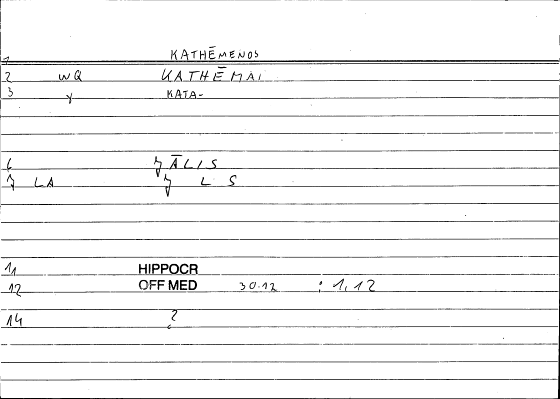 1 KATHĒMENOS
2 WQ KATHĒMAI
3 Y KATA-
6 7 ĀLIS
7 LA 7 L S
11 HIPPOCR
12 OFF MED 30.12 : 1,12
14 ?